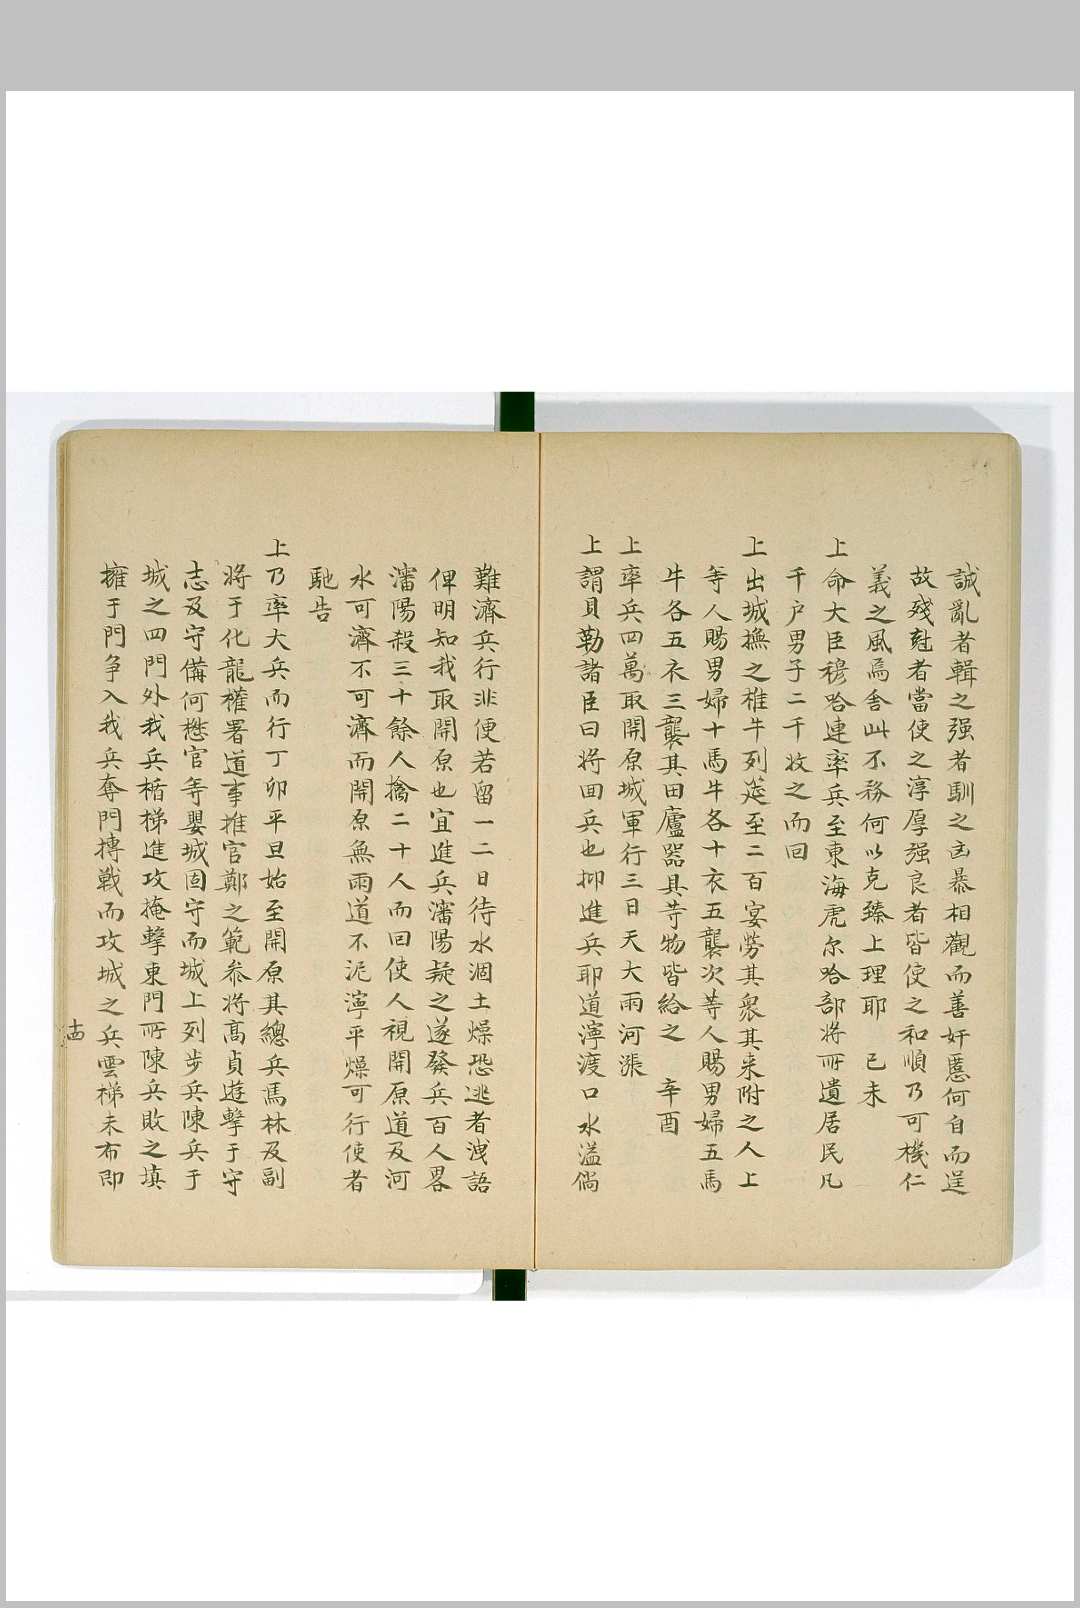 誠亂者輯之强者馴之凶暴相觀而善奸慝何自而逞
故殘尅者當使之淳厚强良者皆使之和順乃可機仁
義之風焉舍此不務何以克臻上理耶　己未
上命大臣穆哈連率兵至東海虎尔哈部將所遺居民凡
千户男子二千收之而回
上出城撫之椎牛列筵至二百宴勞其衆其来附之人上
等人賜男婦十馬牛各十衣五襲次等人賜男婦五馬
牛各五衣三襲其田廬器具等物皆給之　辛酉
上率兵四萬取開原城軍行三日天大雨河漲
上謂貝勒諸臣曰將回兵也抑進兵耶道濘渡口水溢倘
難濟兵行非便若留一二日待水涸土燥恐逃者洩語
俾明知我取開原也宜進兵瀋陽疑之遂發兵百人畧
瀋陽殺三十餘人擒二十人而回使人視開原道及河
水可濟不可濟而開原無雨道不泥濘平燥可行使者
馳告
上乃率大兵而行丁卯平旦始至開原其總兵馬林及副
將于化龍權署道事推官鄭之範叅將高貞遊擊于守
志及守備何懋官等嬰城固守而城上列步兵陳兵于
城之四門外我兵楯梯進攻掩擊東門所陳兵敗之填
擁于門争入我兵奪門搏戰而攻城之兵雲梯未布即
十四